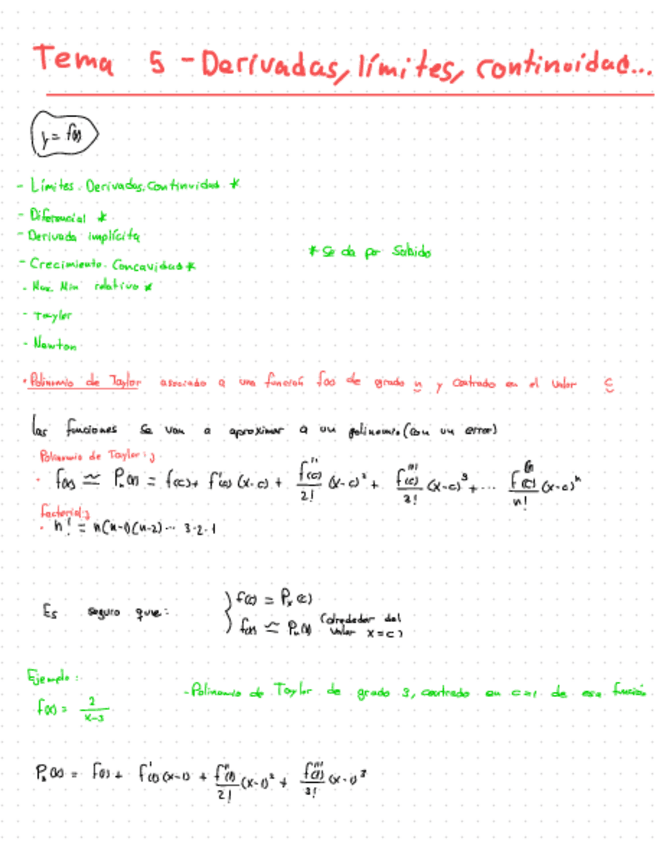 Tema 5 - Derivadas, límites, continuidad...
y = f(x)
- Límites. Derivadas. Continuidad *
- Diferencial *
- Derivada implícita
* Se da por Sabido
- Crecimiento. Concavidad *
- Max. Min relativo *
- Taylor
- Newton
· Polinomio de Taylor asociado a una función f(x) de grado n y centrado en el valor c
las funciones se van a aproximar a un polinomio (con un error)
Polinomio de Taylor:
· f(x) ≃ Pn(x) = f(c) + f'(c) (x-c) + f''(c)/2! (x-c)² + f'''(c)/3! (x-c)³ + ... fⁿ(c)/n! (x-c)ⁿ
Factorial:
· n! = n(n-1)(n-2)... 3·2·1
Es seguro que: { f(c) = Pn(c)
f(x) ≃ Pn(x) (alrededor del valor x=c)
Ejemplo:
- Polinomio de Taylor de grado 3, centrado en c=1 de esa función
f(x) = 2/x-3
P3(x) = f(1) + f'(1)(x-1) + f''(1)/2! (x-1)² + f'''(1)/3! (x-1)³